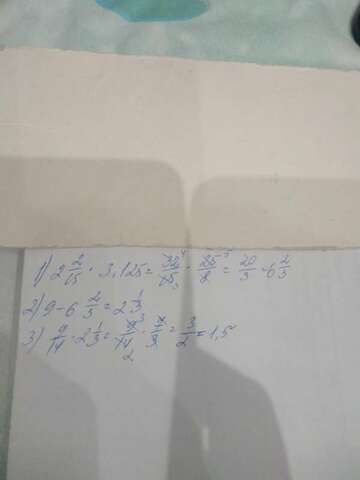 1) 2 2/15 · 3,125 = 32/15 · 25/8 = 20/3 = 6 2/3
2) 9 - 6 2/3 = 2 1/3
3) 9/14 · 2 1/3 = 9/14 · 7/3 = 3/2 = 1,5